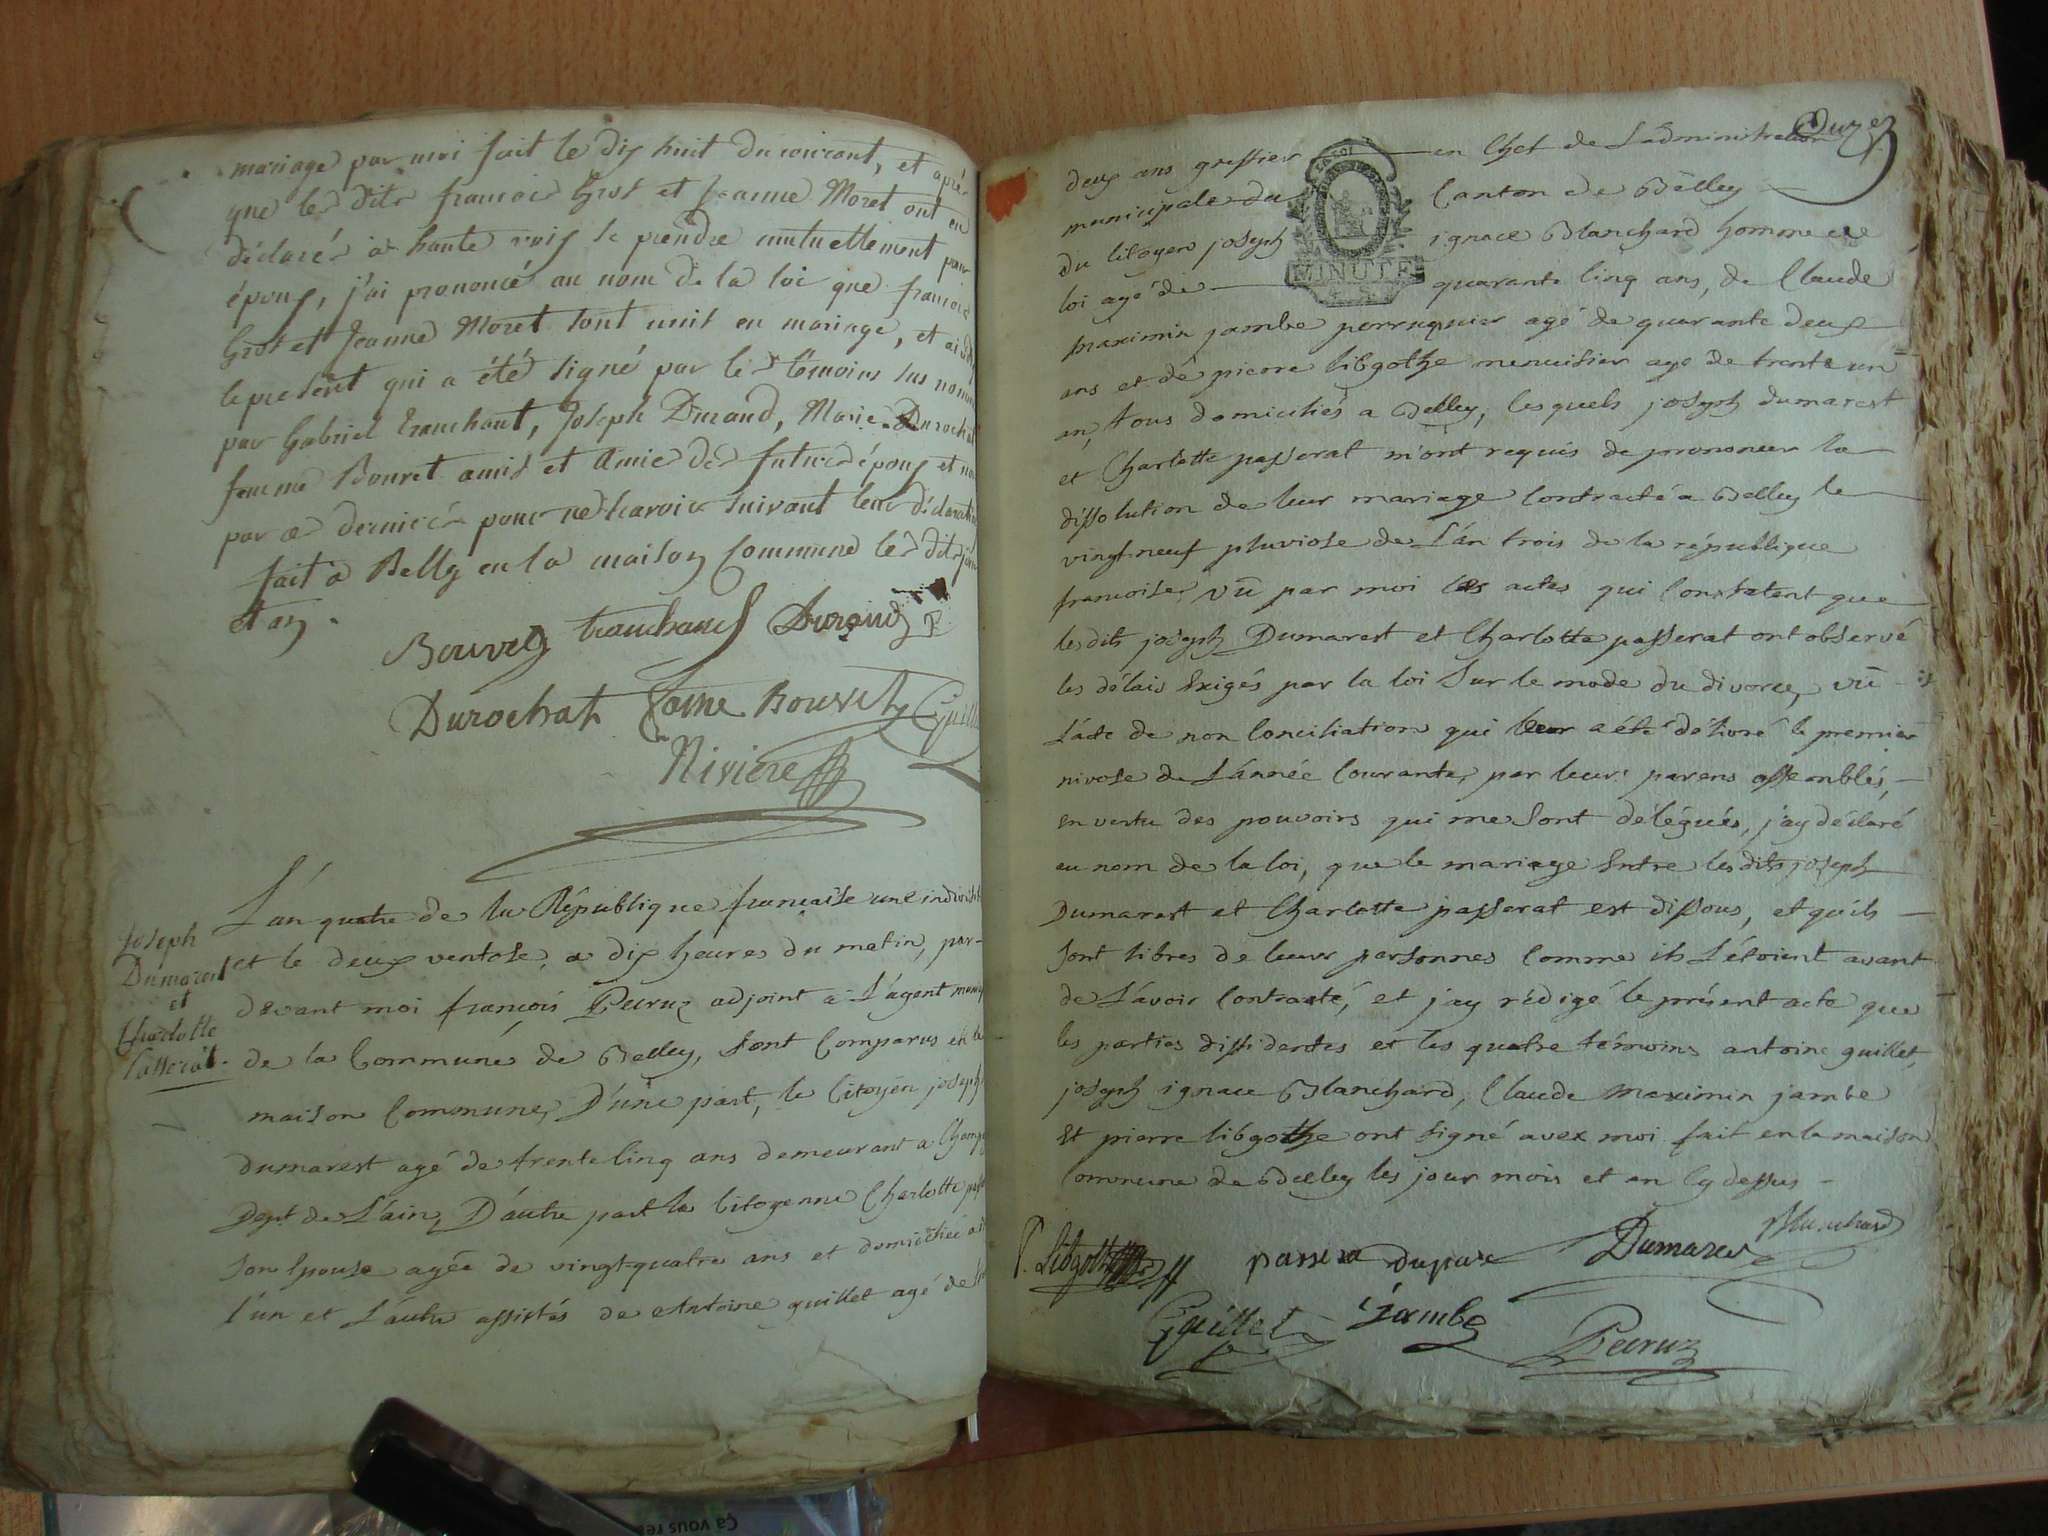 mariage par moi fait le dix huit du courant, et après
que les dits françois Gros et Jeanne Moret ont en
déclaré à haute voix se prendre mutuellement pour
époux, j'ai prononcé au nom de la loi que françois
Gros et Jeanne Moret sont unis en mariage, et ai
le present qui a été signé par les témoins sus
par Gabriel Tranchant, Joseph Durand, Marie Durochat
femme Bouvet amis et Amie des futurs époux et non
par ce derniers pour ne scavoir suivant leur
fait a Belley en la maison Commune les dits jour
et an.
Bouvet tranchant Durand
Durochat fame Bouvet Guillet
Rivière
Joseph
Dumarest
et
Charlotte
Passerat.
L'an quatre de la République française une
et le deux ventose, a dix heures du matin, par-
devant moi françois Peeruz adjoint à L'agent
de la Commune de Belley, sont Comparus en la
maison Commune, D'une part, le Citoyen joseph
dumarest agé de trente cinq ans demeurant a
Dept de L'ain, D'autre part la Citoyenne Charlotte
son Epouse agée de vingt-quatre ans et domiciliée a
l'un et L'autre assistés de Antoine guillet agé de
deux ans greffier en Chef de L'administration
municipale du Canton de Belley
du Citoyen joseph ignace Blanchard homme de
loi agé de quarante Cinq ans, de Claude
maximin jambe perruquier agé de quarante deux
ans et de pierre libgothe menuisier agé de trente un
an, tous domiciliés a Belley, lesquels joseph dumarest
et Charlotte passerat m'ont requis de prononcer la
dissolution de leur mariage Contracté a Belley le
vingt neuf pluviose de L'an trois de la république
francoise, vû par moi les actes qui Constatent que
les dits joseph Dumarest et Charlotte passerat ont observé
les délais Exigés par la loi sur le mode du divorce, vû
L'acte de non Conciliation qui leur a été délivré le premier
nivose de L'année Courante, par leurs parens assemblés,
en vertu des pouvoirs qui me sont délégués, j'ay déclaré
au nom de la loi, que le mariage Entre les dits joseph
Dumarest et Charlotte passerat est dissous, et qu'ils
sont libres de leurs personnes Comme ils L'étoient avant
de L'avoir Contracté, et j'ay rédigé le présent acte que
les parties dissidentes et les quatre témoins antoine guillet,
joseph ignace Blanchard, Claude maximin jambe
Et pierre libgothe ont signé avec moi fait en la maison
Commune de Belley les jour mois et an Cy dessus
P. Libgott passera Dumarest Blanchard
Guillet Jambe Peeruz
LA LOI
MINUTE